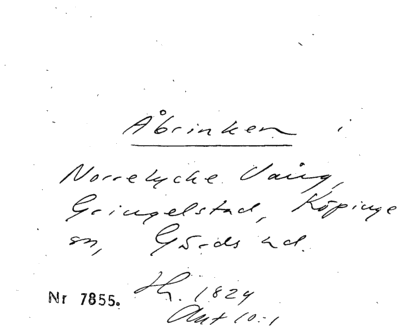 Åbrinken i
Norrelycke Vång,
Gringelstad, Köpinge
sn, Gärds hd.
Nr 7855. Hl. 1824
Akt 10:1